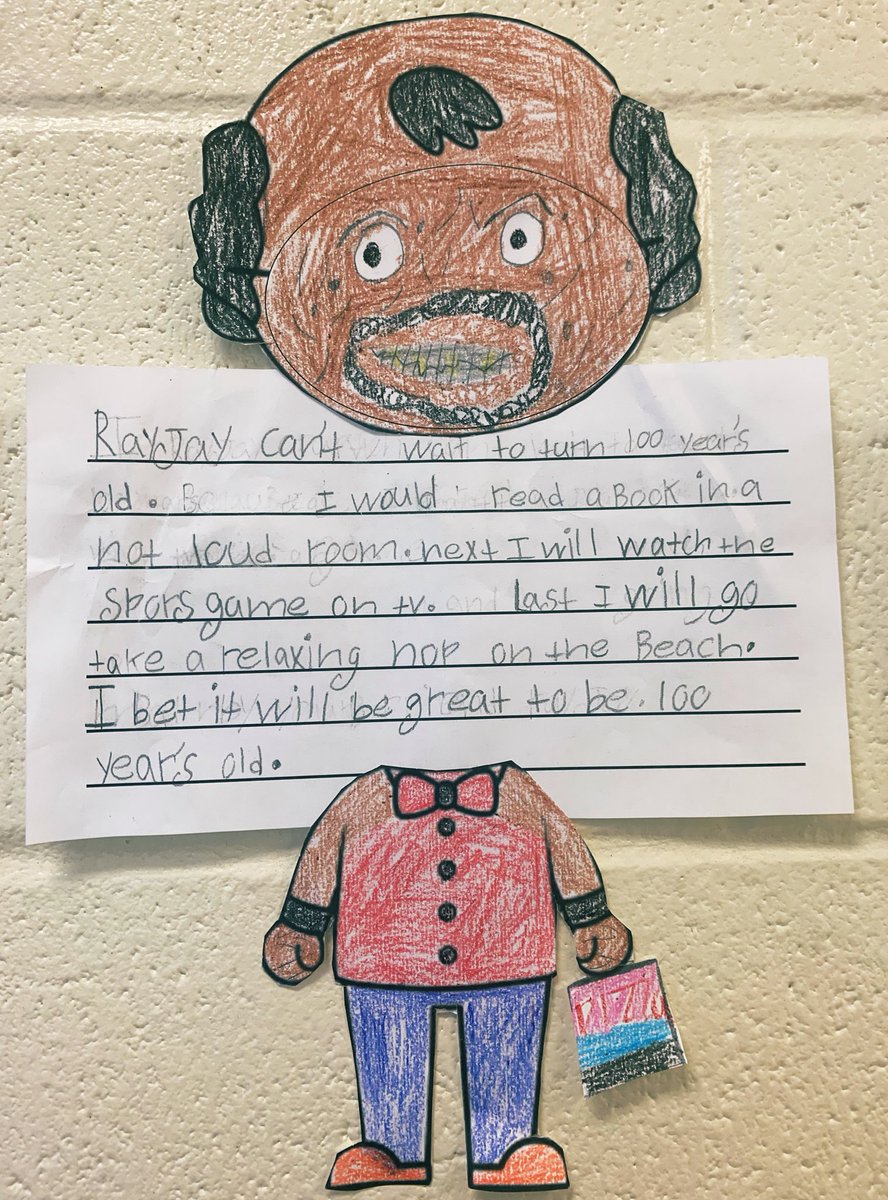 RayJay can't wait to turn 100 year's
old. I would read a Book in a
not loud room. next I will watch the
spors game on tv. last I will go
take a relaxing nop on the Beach.
I bet it will be great to be. 100
year's old.